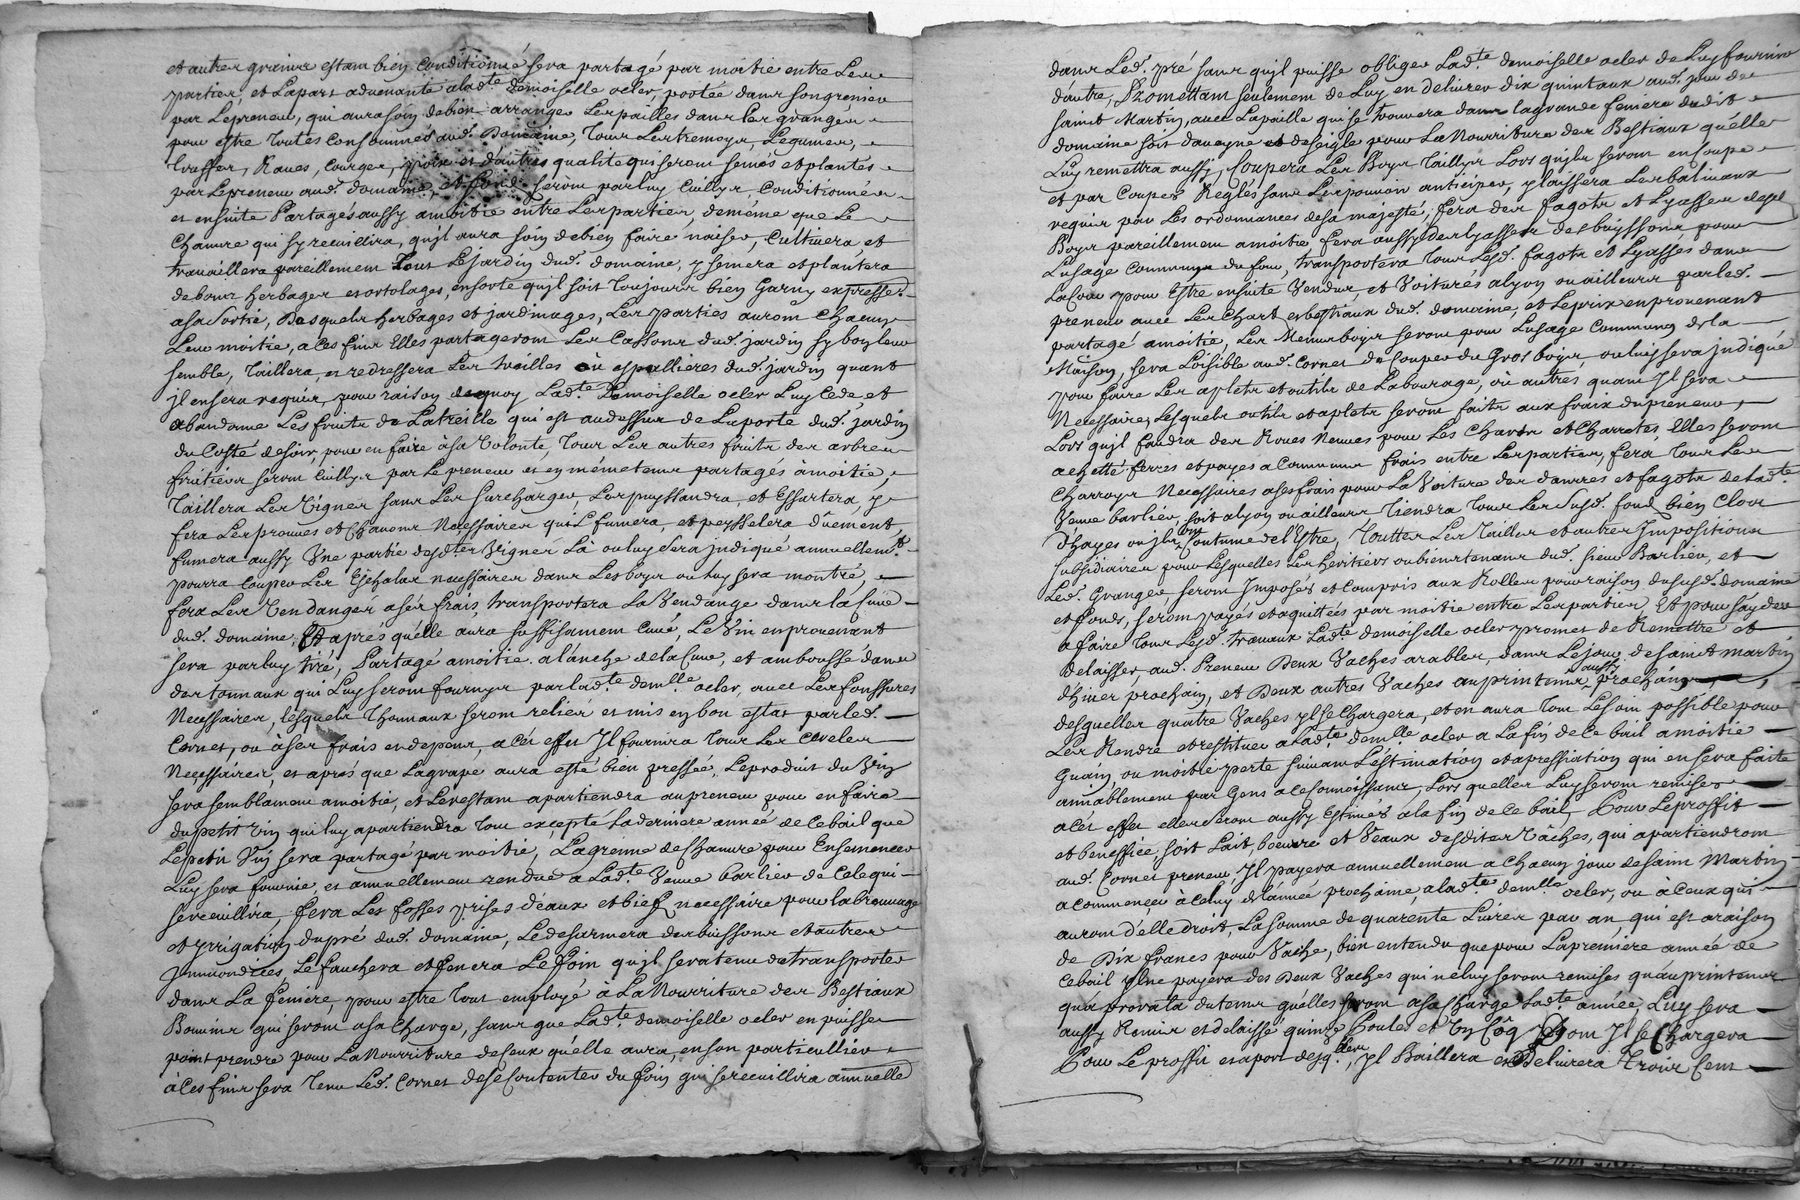 et autres grains estant bien conditionné sera partagé par moitié entre Les
parties, et Lapart advenante alad.te demoiselle ocler, portée dans songrenier
par Lepreneur, qui aura soin debien arranger Les pailles dans Les granges
pour estre toutes consommées aud. Domaine, Tous Les tremoys, Legumes,
truffes, Raves, courges, poix et d'autres qualité qui seront semés et plantés
par Lepreneur aud. domaine, et fond seront par luy cuillys, conditionnés
et ensuite Partagés aussy amoitié entre Les parties, demême que Le
Chanvre qui sy recuillira, qu'il aura soin debien faire naiser, Cultivera et
travaillera pareillement tout Lejardin dud. domaine, y semera et plantera
debons herbages et ortolages, ensorte qu'jl soit Toujours bien Garny expressé.
asa Sortie, Desquels herbages et jardinages, Les parties auront Chacun
Leur moitié, a ces fins Elles partageront Les Cassons dud. jardin
semble, Taillera, et redressera Les treilles où espallieres dud. jardin quant
jl ensera requis, pour raison dequoy Lad.te Demoiselle ocler Luy Cede, et
abandonne Les fruits de Latreille qui est audessus de Laporte dud. jardin
du Costé desoir, pour en faire àsa Volonté, Tous Les autres fruits des arbres
fruitiers seront cuillys par Le preneur et en mêmetems partagés àmoitié,
Taillera Les Vignes sans Les surcharger, Les puyssandra, et Essartera y
fera Les provues et Chavons Necessaires qu'il fumera, et peysselera dûement,
fumera aussy Une partie desdites Vignes Là ou luy sera jndiqué annuellem.t
pourra couper Les Eschalas necessaires dans Les boys ou luy sera montré,
fera Les Vendanges asés frais, transportera La Vendange dans la cuve
dud. domaine, Et aprés quélle aura suffisament cuvé, Le Vin enprovenant
sera par luy tiré, Partagé amoitié alánche delaCuve, et amboussé dans
des tonnaux qui Luy seront fournys par lad.te dem.lle ocler, avec Les fonssures
Necessaires, lesquels Thonnaux seront reliés et mis en bon estat par led.
Cornet, ou àses frais et depens, a cés effet Jl fournira Tous Les Cercles
Necessaires, et aprés que Lagrape aura esté bien pressée, Leproduit du Vin
sera semblament amoitié, et Lerestant apartiendra aupreneur pour en faire
dupetit vin qui luy apartiendra Tout excepté Laderniere année decebail que
Lepetit Vin sera partagé par moitié, Lagrenne deChanvre pour Ensemencer
Luy sera fournie, et annuellement rendue a Lad.te Veuve barlier de Celequi
serecuillira, fera Les fossés prises d'eaux et biefs necessaire pour labreuvage
et yrrigation dupré dud. domaine, Ledesarmera des buissons et autres
jmmondices, Le fauchera et fenera Le foin qu'jl sera tenu detransporter
dans La feniére, pour estre Tout employé à LaNourriture des Bestiaux
Bovins qui seront asa Charge, sans que Lad.te demoiselle ocler en puisse
point prendre pour La Nourriture deCeux quélle aura en son particullier
àCes fins sera Tenu Led. Cornet deseContenter du foin qui serecuillira annuelle
dans Led. pré sans qu'jl puisse obliger Lad.te demoiselle ocler de Luy fournir
dautre, Promettant seulement de Luy en delivrer dix quintaux aud. jour de
saint Martin, avec Lapaille qui se trouvera dans la grande feniere dudit
domaine soit davoyne et deseigle pour LaNourriture des Bestiaux qu'elle
Luy remettra aussy, Coupera Les Boys Taillys Lors qu'jls seront en Coupe
et par Coupes Reglés sans Les pouvoir anticiper, y laissera Les balivaux
requis par Les ordonnances desa majesté, fera des fagots et Lyasses
Boys pareillement amoitié fera aussy des lyasses des buyssons pour
Lusage Commun du four, transportera Tous Lesd. fagots et Lyassés dans
LaCour pour Estre ensuite Vendus, et Voiturés alyon ou ailleurs par led.
preneur avec Les Chars et bestiaux dud. domaine, et Le prix en provenant
partagé amoitié, Les Menus boys seront pour Lusage Commun de la
Maison, sera Loisible aud. Cornet de Couper du Gros boys, ou luis sera jndiqué
pour faire Les aplets et outils de Labourage, où autrés quant Jl sera
Necessaire, Lesquels outils et aplets seront faits aux fraix dupreneur,
Lors qu'jl faudra des Roues Neuves pour Les Chars et Charretes, Elles seront
achetté ferrés et payés a Communs frais entre Les parties, fera Tous Les
Charroys Necessaires asesfrais pour La Voiture des danrées et fagots de lad.te
Veuve barlier, soit alyon ou ailleurs Tiendra Tous Les Susd. fond bien Clos
d'hayes ou jls ont Coutume del'Estre, Touttes Les Tailles et autres Impositions
subsidiaires pour Lesquelles Les heritiers ou biens tenans dud. sieur Barlier, et
Led. Granger seront Imposés et Compris aux Rolles pour raison dususd. domaine
et fonds, seront payés et aquittés par moitié entre Les parties, Et pour s'ayder
a faire Tous Lesd. travaux Lad.te demoiselle ocler promet de Remettre et
delaisser aud. Preneur Deux Vaches arables, dans Lejour desaint martin
dhiver prochain, et Deux autres Vaches auprintems aussy prochain,
desquelles quatre Vaches jl se Chargera, et en aura Tout Lesoin possible pour
Les Rendre et restituer a Lad.te dem.lle ocler a Lafin de ce bail amoitié
Guain ou moitié perte suivant L'éstimation et apressiation qui en sera faite
amiablement par Gens a ce Connoissans, Lors quelles Luy seront remises
a cés effet elles Seront aussy Estimés ala fin de ce bail, Pour Leproffit
et beneffice, soit Lait, boeurre et Veaux desdites Vâches, qui apartiendront
aud. Cornet preneur Jl payera annuellement a chacun jour desaint Martin
a commencer à celuy delánnée prochaine, alad.te dem.lle ocler, ou à Ceux qui
auront d'elle droit, La somme de quarente Livres par an, qui est araison
de Dix francs pour Vache, bien entendu que pour Lapremiere année de
Cebail yl ne payera des Deux Vaches qui ne luy seront remises qu'auprintems
qu'a prorata du tems quelles seront asa Charge Ladte année, Luy sera
aussy Remis et delaissé quinze Poules et Un Coq Dont Jl se Chargera
Pour Le proffit et aport desq.lles, Jl Baillera et Delivrera Trois Cent